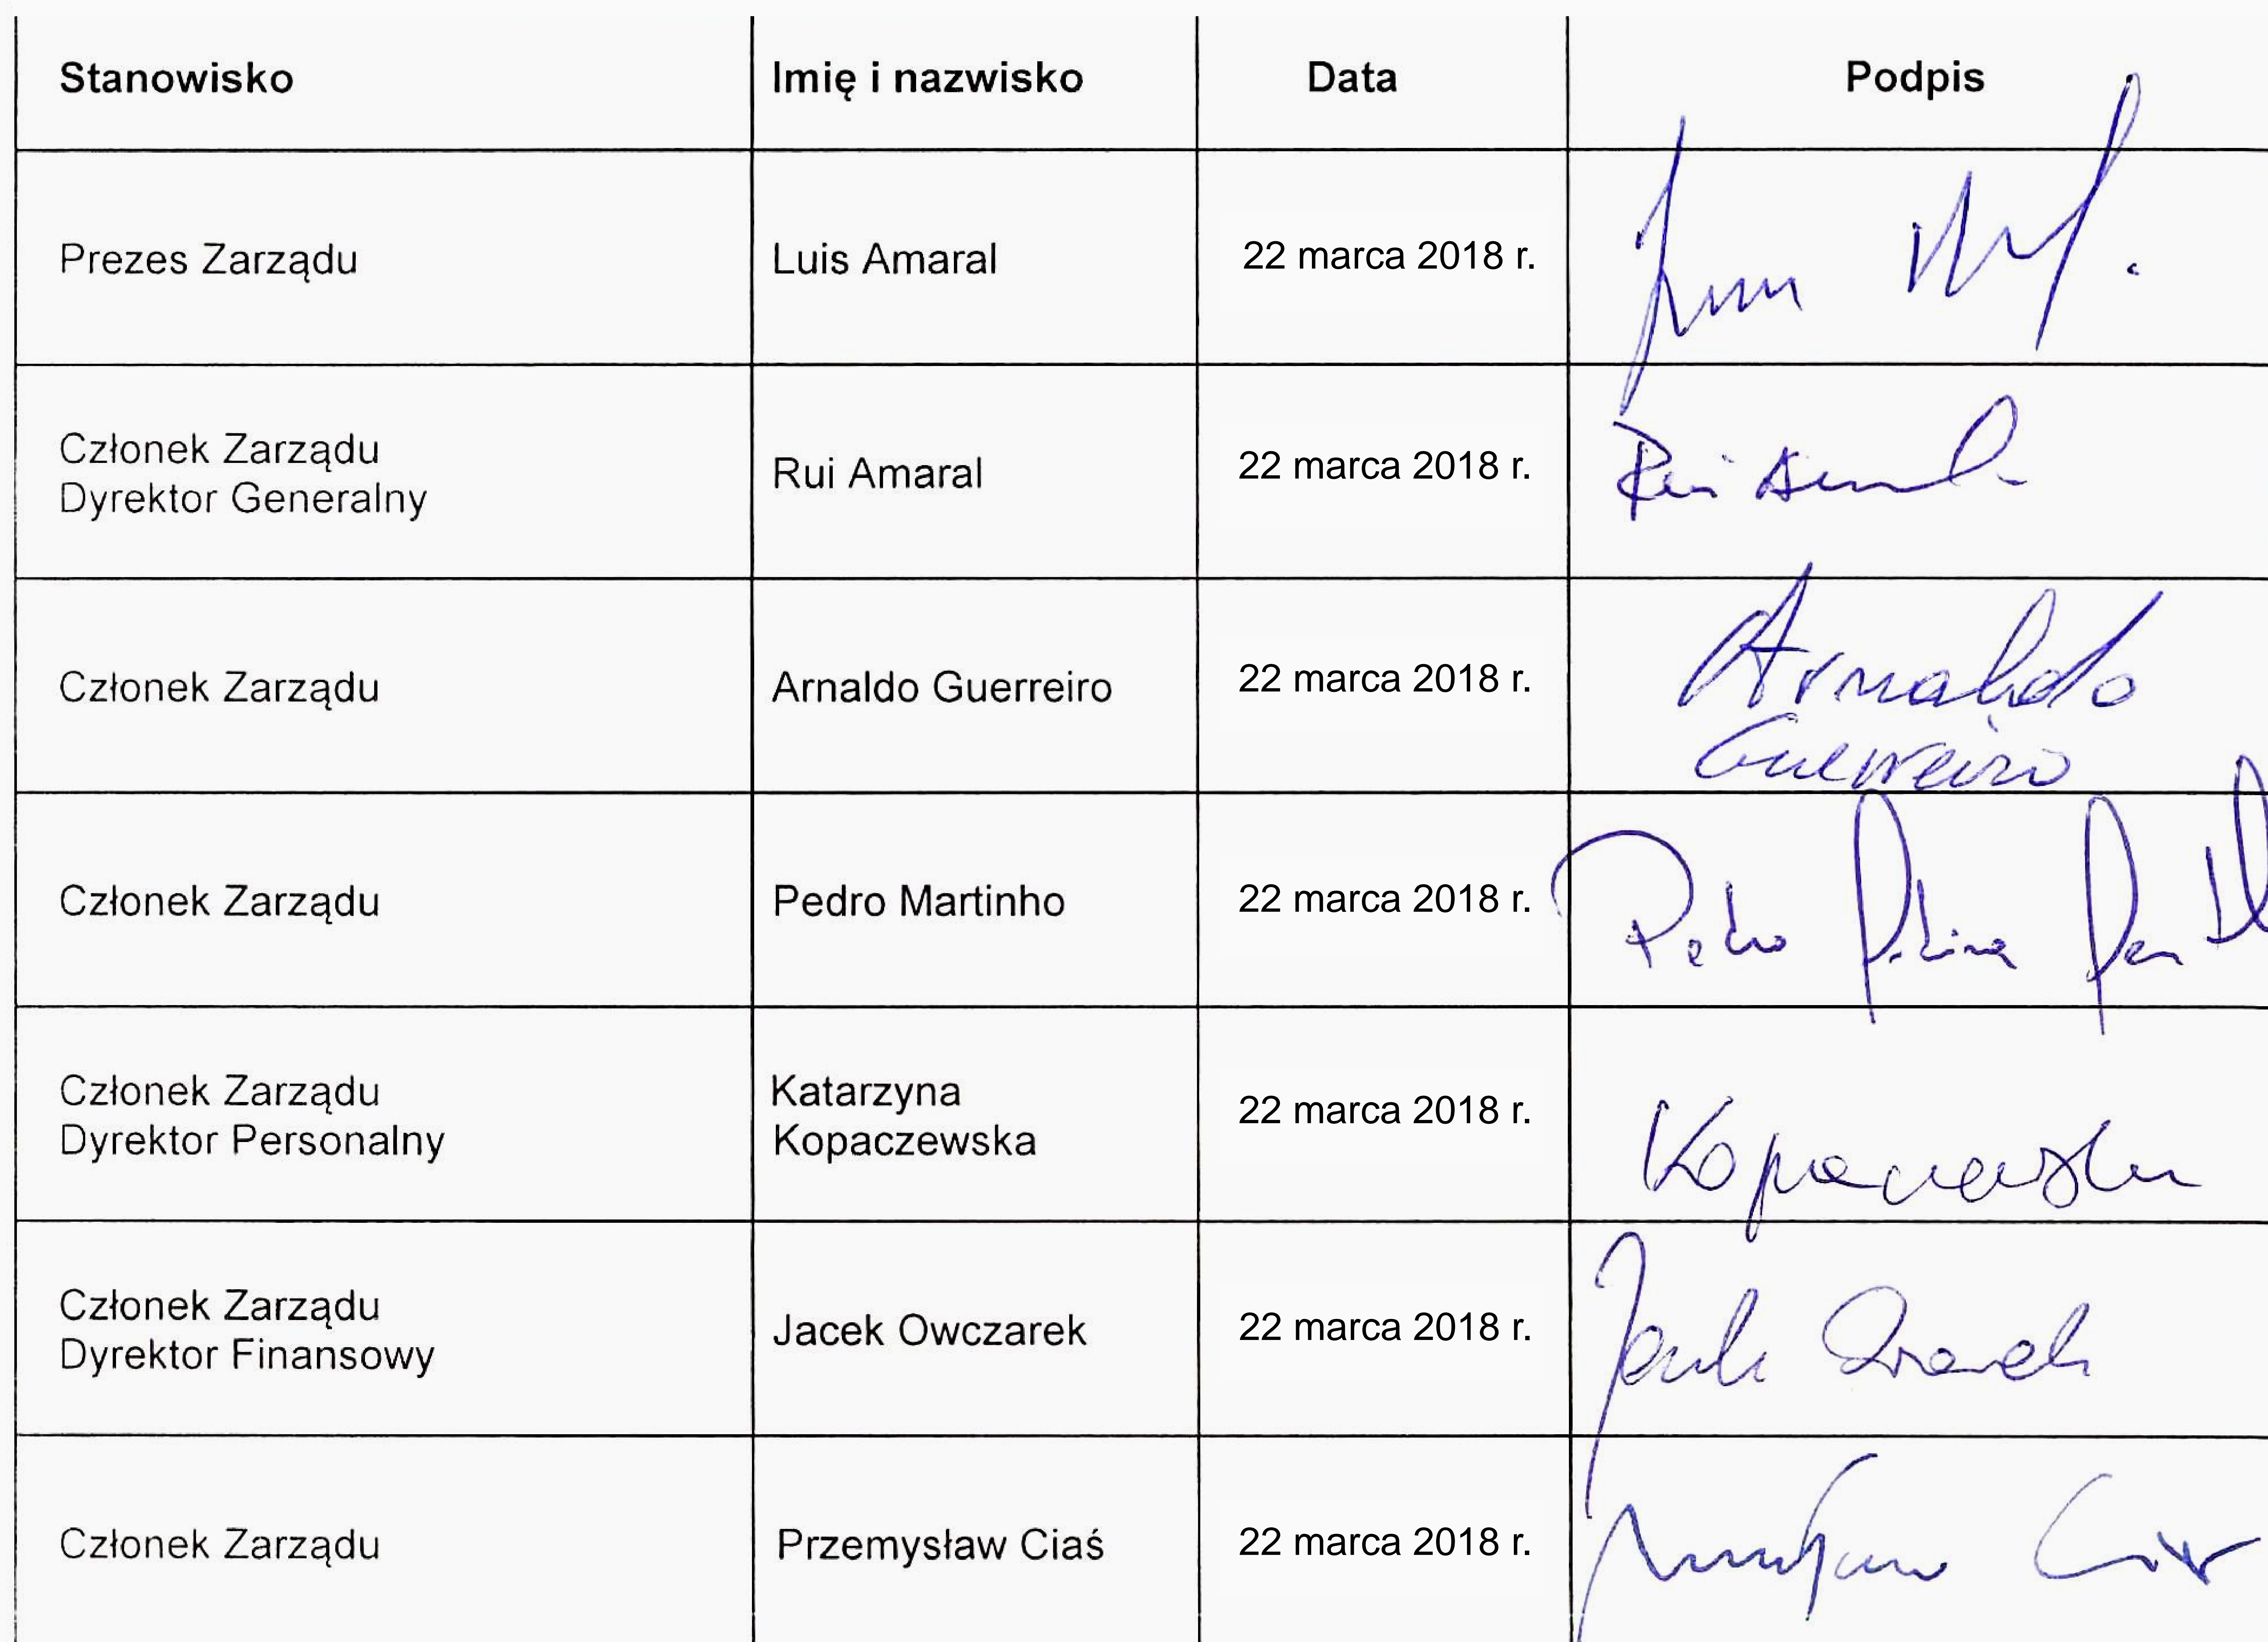 Stanowisko Imię i nazwisko Data Podpis
Prezes Zarządu Luis Amaral 22 marca 2018 r.
Członek Zarządu
Dyrektor Generalny Rui Amaral 22 marca 2018 r.
Członek Zarządu Arnaldo Guerreiro 22 marca 2018 r. Arnaldo
Guerreiro
Członek Zarządu Pedro Martinho 22 marca 2018 r. Pedro
Członek Zarządu
Dyrektor Personalny Katarzyna
Kopaczewska 22 marca 2018 r.
Członek Zarządu
Dyrektor Finansowy Jacek Owczarek 22 marca 2018 r.
Członek Zarządu Przemysław Ciaś 22 marca 2018 r.